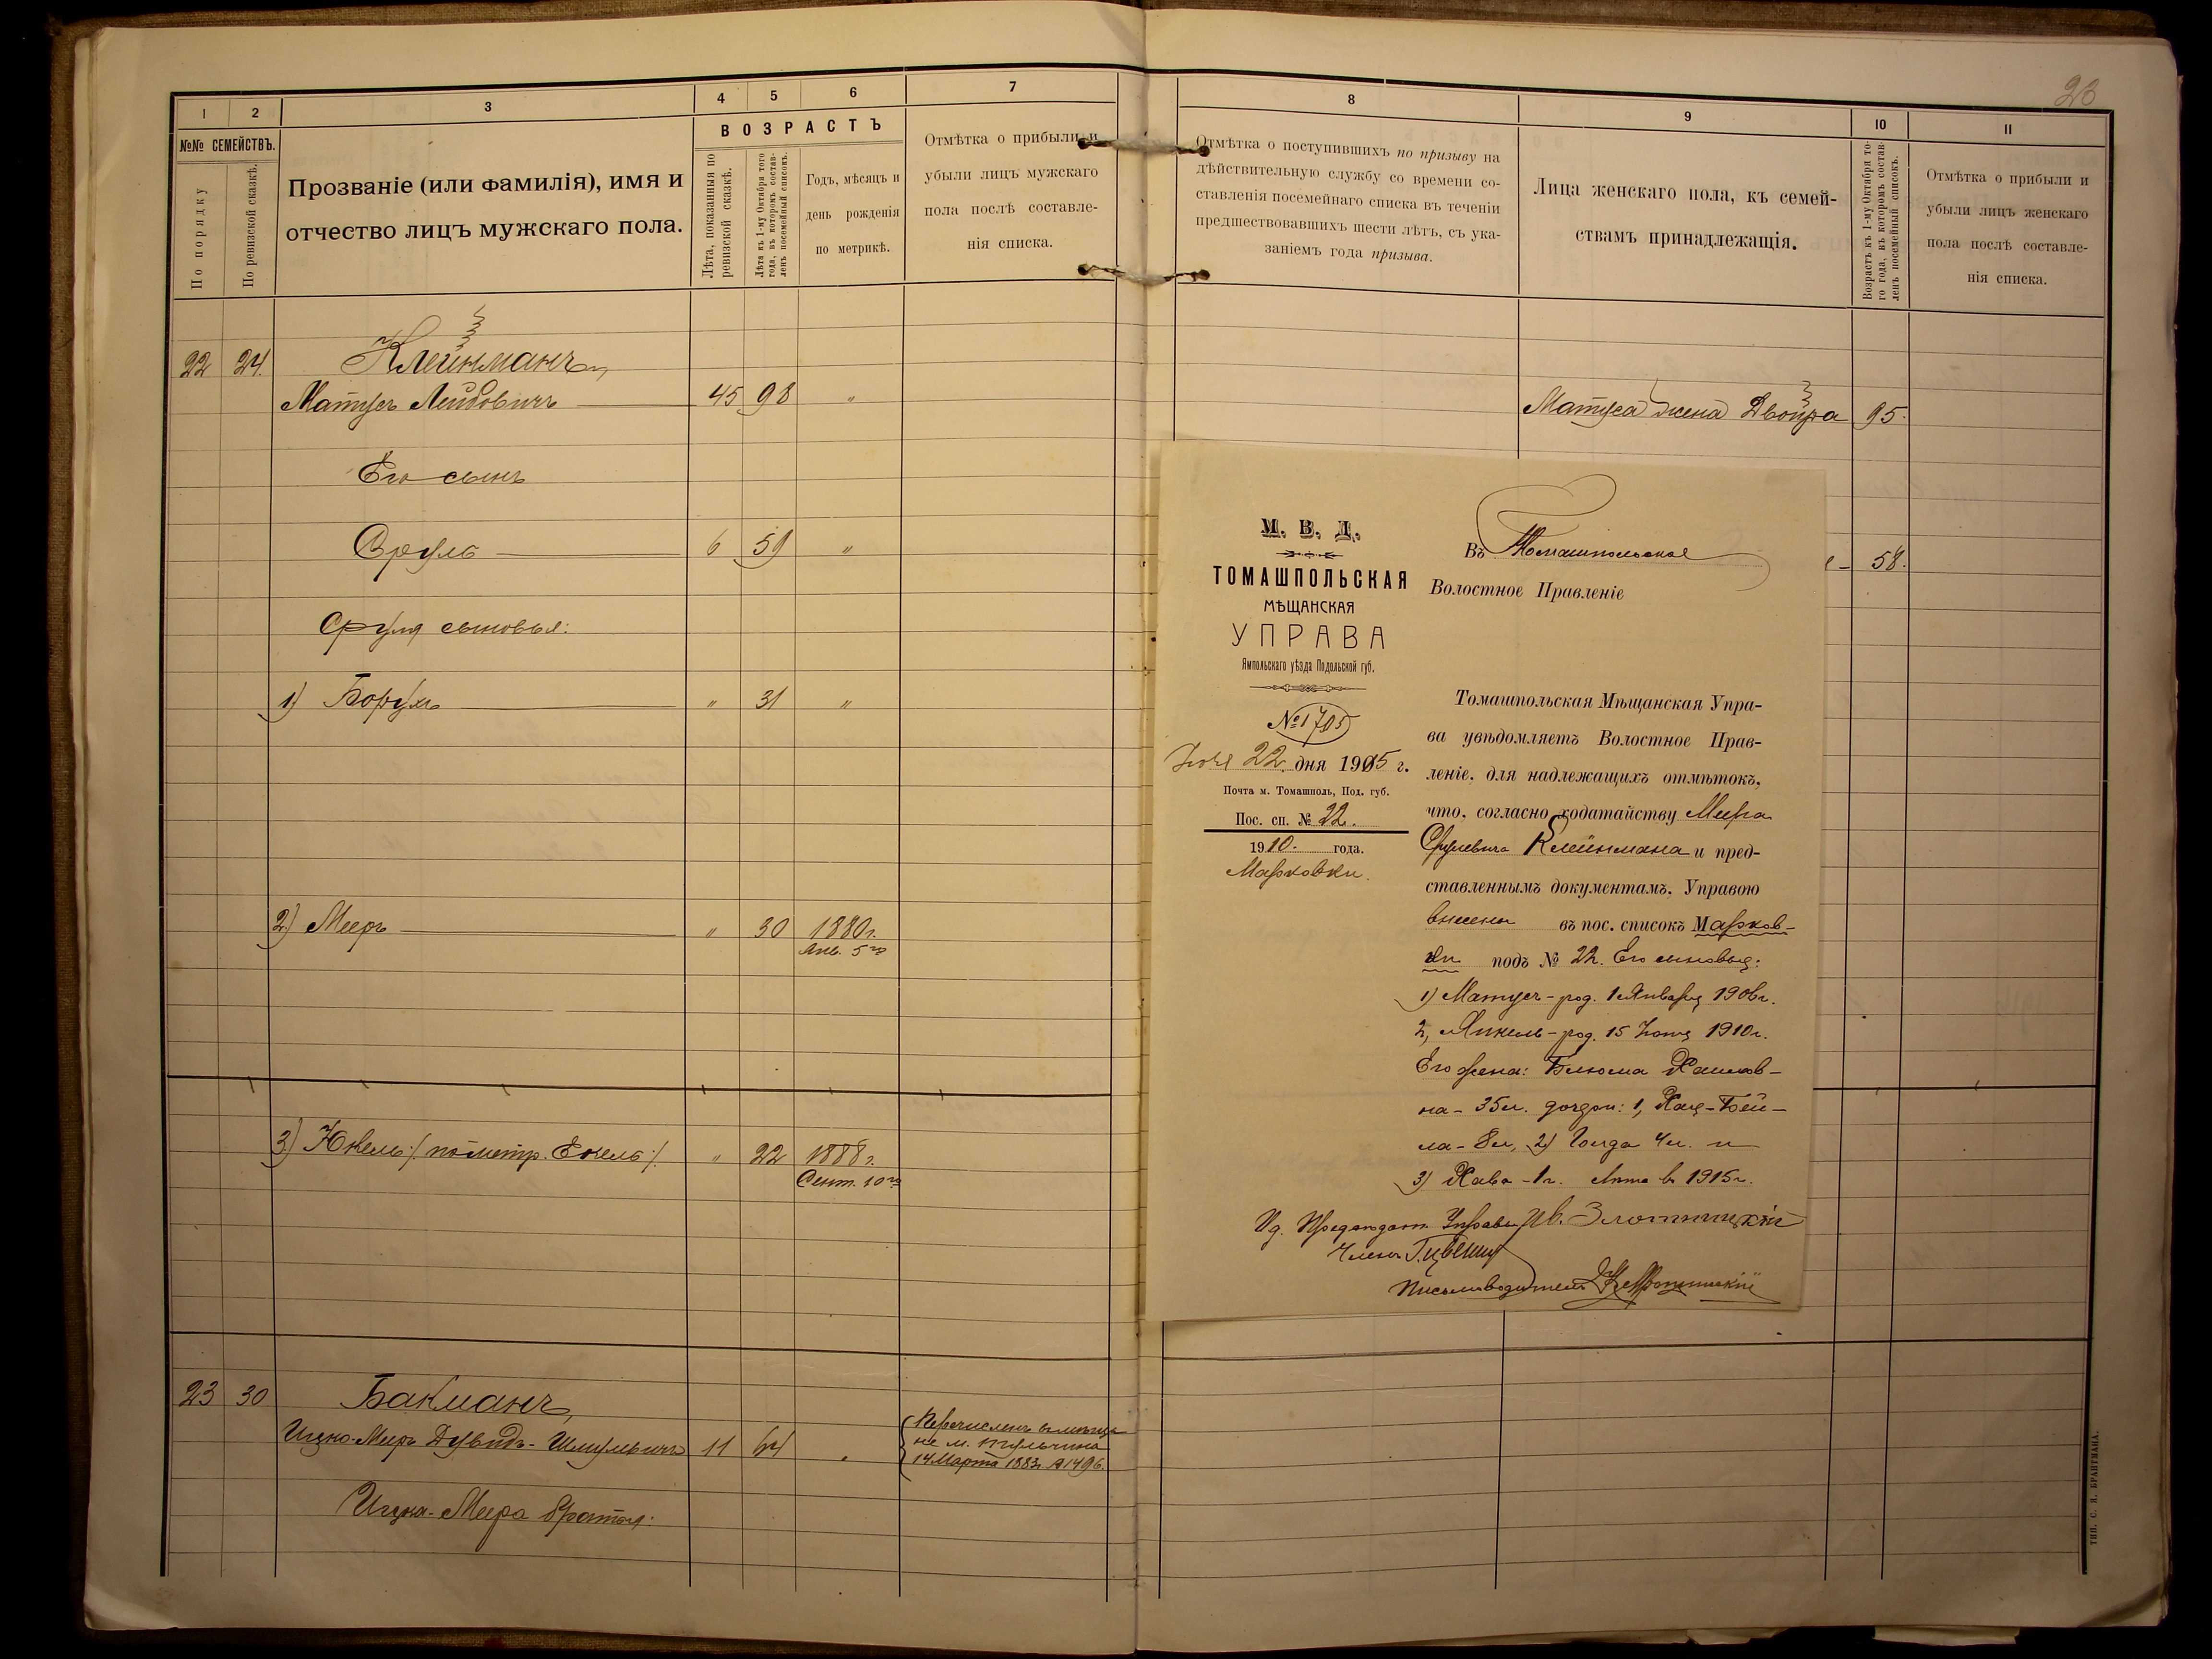 23
1 2 3 4 5 6 7
№№ СЕМЕЙСТВЪ.
По порядку
По ревизской сказкѣ.
Прозваніе (или фамилія), имя и
отчество лицъ мужскаго пола.
ВОЗРАСТЪ
Лѣта, показанныя по
ревизской сказкѣ.
Лѣта къ 1-му Октября того
года, въ которомъ состав-
ленъ посемейный списокъ.
Годъ, мѣсяцъ и
день рожденія
по метрикѣ.
Отмѣтка о прибыли и
убыли лицъ мужскаго
пола послѣ составле-
нія списка.
22 24. Клейнманъ,
Матусъ Лейбовичъ 45 98 "
Его сынъ
Сруль 6 59 "
Сруля сыновья:
1) Борухъ " 31 "
2) Мееръ " 30 1880г.
Янв. 5го
3) Юкель /. по метр. Екель ./. " 22 1888г.
Сент. 10го
23 30 Бакманъ,
Ицко-Меръ Дувидъ-Шмулевичъ 11 64 "
Перечисленъ въ мѣща
не м. Тульчина
14 Марта 1883г. № 1496.
Ицка-Меера братья:
8 9 10 11
Отмѣтка о поступившихъ по призыву на
дѣйствительную службу со времени со-
ставленія посемейнаго списка въ теченіи
предшествовавшихъ шести лѣтъ, съ ука-
заніемъ года призыва.
Лица женскаго пола, къ семей-
ствамъ принадлежащія.
Возрастъ къ 1-му Октября то-
го года, въ которомъ состав-
ленъ посемейный списокъ.
Отмѣтка о прибыли и
убыли лицъ женскаго
пола послѣ составле-
нія списка.
Матуса жена Двойра 95.
58.
М. В. Д.
ТОМАШПОЛЬСКАЯ
МѢЩАНСКАЯ
УПРАВА
Ямпольскаго уѣзда Подольской губ.
№ 1705
22 дня 1915 г.
Почта м. Томашполь, Под. губ.
Пос. сп. № 22.
1910 года.
Марковки.
Въ Томашпольское
Волостное Правленіе
Томашпольская Мѣщанская Упра-
ва увѣдомляетъ Волостное Прав-
леніе, для надлежащихъ отмѣтокъ,
что, согласно ходатайству Меера
Срулевича Клейнмана и пред-
ставленнымъ документамъ, Управою
внесены въ пос. списокъ Марков-
ки подъ № 22. Его сыновья:
1) Матусъ - род. 1 Января 1906г.
2, Янкель - род. 15 1910г.
Его жена: Блюма Хаимов-
на - 35 л. дочери: 1, Хая-Бей-
ла - 8 л, 2) Голда 4 л. и
3) Хава - 1 г. лѣта въ 1915г.
Ив. Злотницкій
Членъ
Письмоводитель
ТИП. С. Я. БРАНТМАНА.